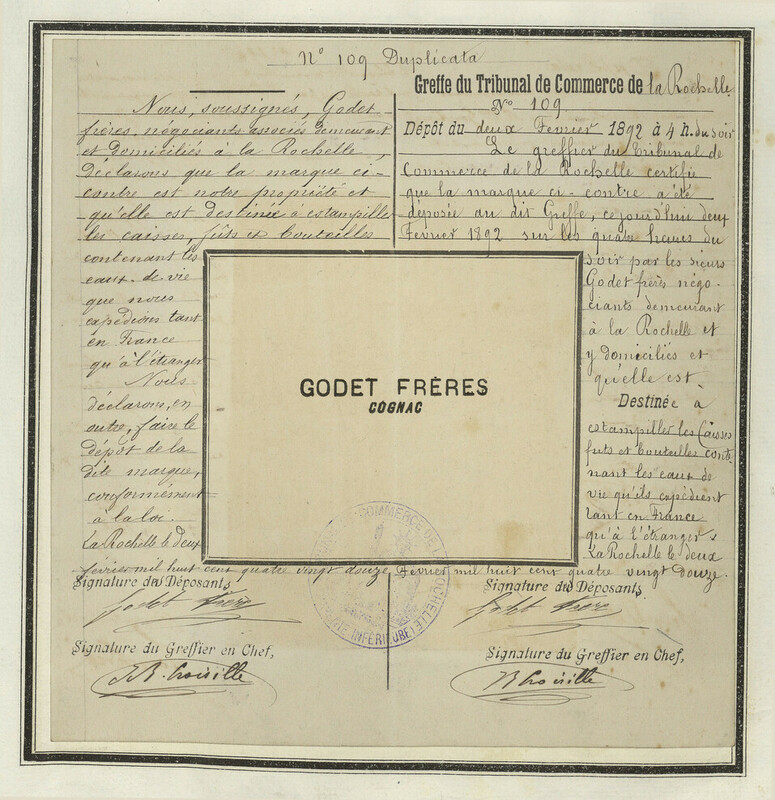 N° 109 Duplicata
Nous, soussignés, Godet
frères, négociants associés demeurant
et domiciliés à la Rochelle,
déclarons que la marque ci-
contre est notre propriété et
qu'elle est destinée à estampiller
les caisses, fûts et bouteilles
contenant les
eaux-de-vie
que nous
expédions tant
en France
qu'à l'étranger
Nous
déclarons, en
outre, faire le
dépôt de la
dite marque,
conformément
à la loi.
La Rochelle le deux
février mil huit cent quatre vingt douze
Signature des Déposants
Godet frères
Signature du Greffier en Chef,
Greffe du Tribunal de Commerce de la Rochelle
N° 109
Dépôt du deux Février 1892 à 4 h. du soir
Le greffier du Tribunal de
Commerce de la Rochelle certifie
que la marque ci-contre a été
déposée au dit Greffe, ce jourd'hui deux
Février 1892 sur les quatre heures du
soir par les sieurs
Godet frères négo-
ciants demeurant
à la Rochelle et
y domiciliés et
qu'elle est
Destinée à
estampiller les Caisses
futs et bouteilles conte-
nant les eaux de
vie qu'ils expédient
tant en France
qu'à l'étranger
La Rochelle le deux
Février mil huit cent quatre vingt douze.
Signature du Déposants
Godet frères
Signature du Greffier en Chef,
GODET FRÈRES
COGNAC
COMMERCE DE LA ROCHELLE
INFÉRIEURE